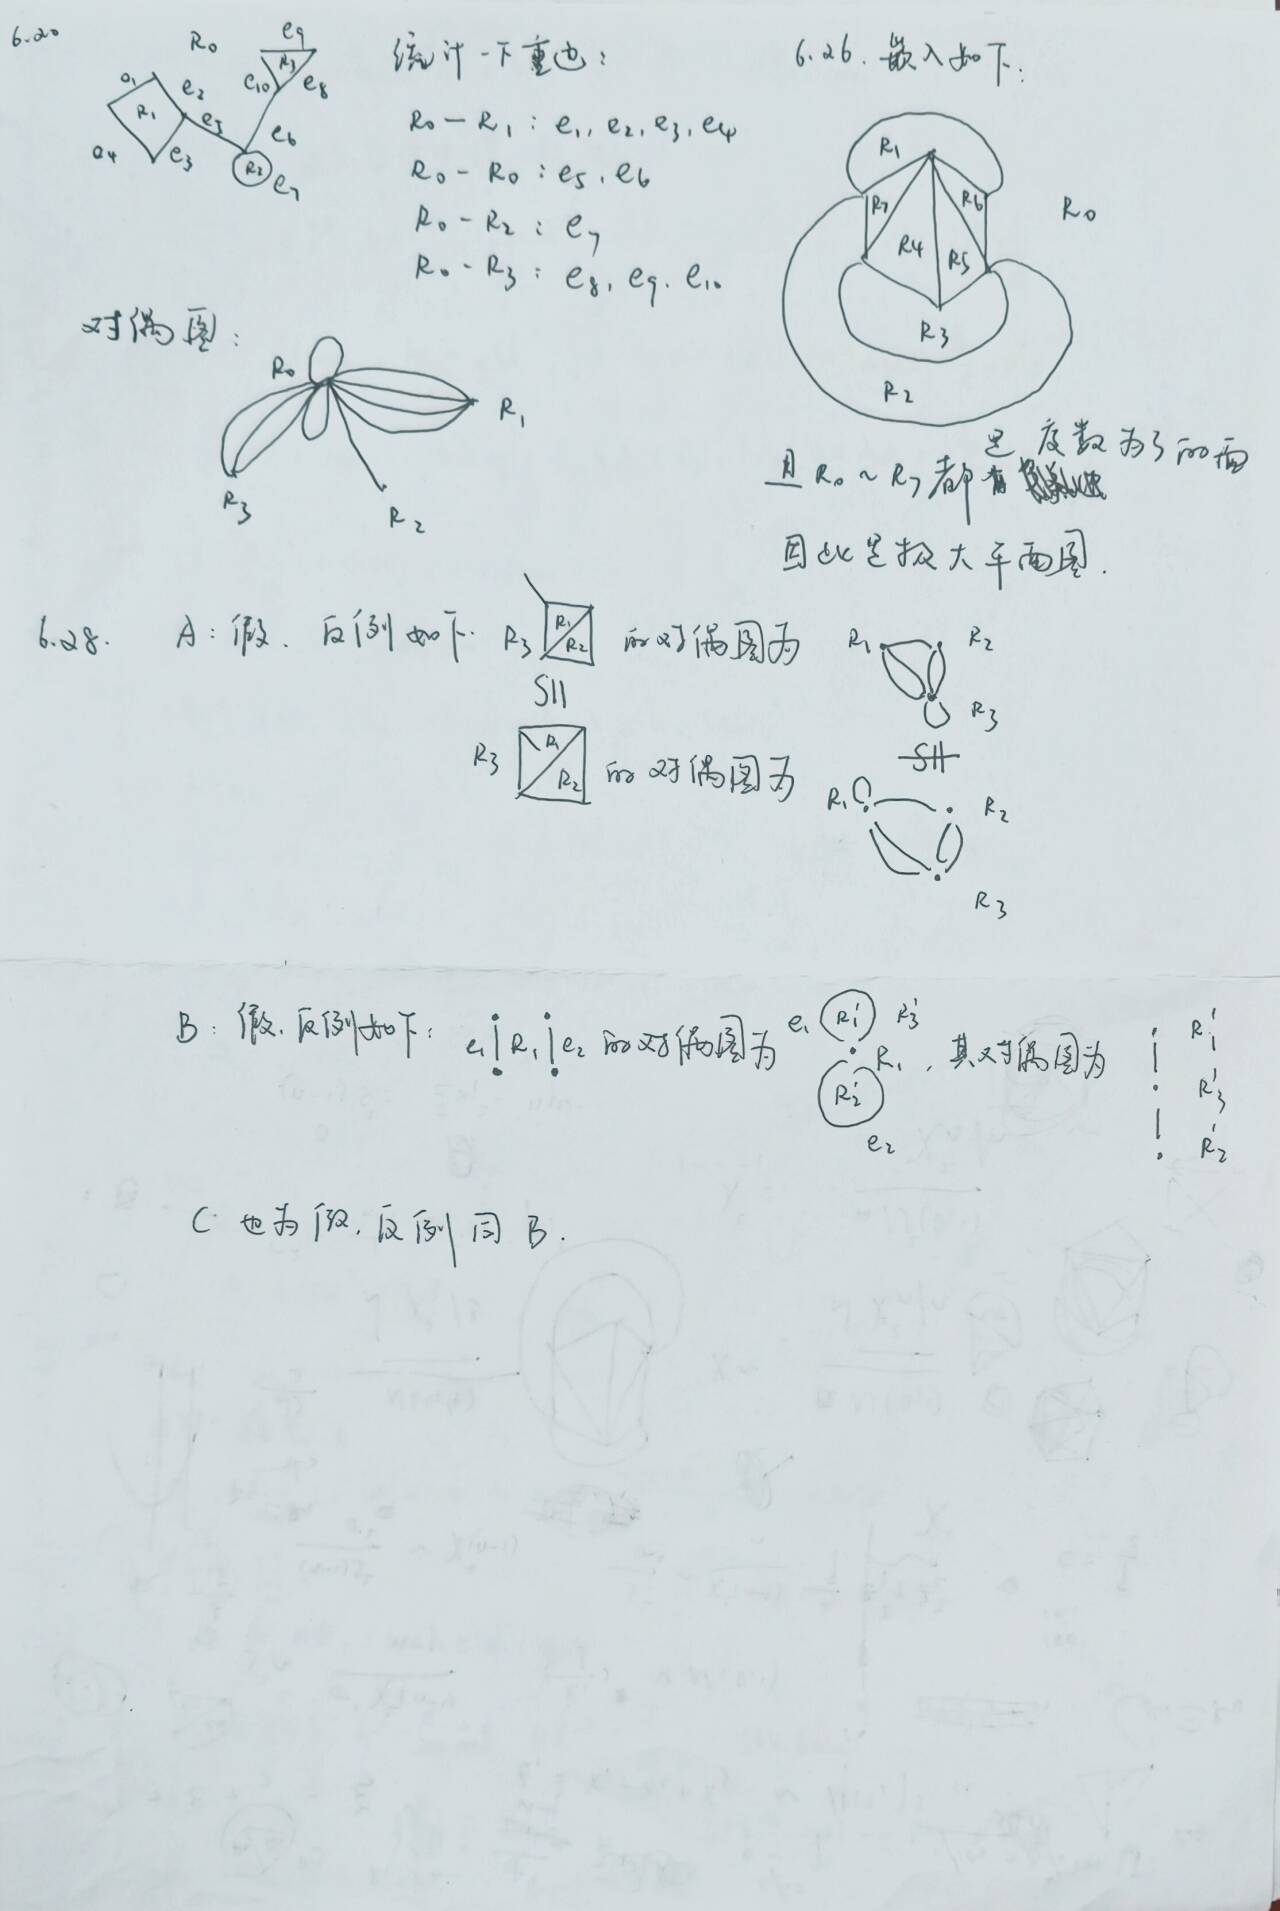 6.20
R₀
e₉
R₃
e₁₀
e₈
e₁
e₂
R₁
e₅
e₆
e₄
e₃
R₂
e₇
统计一下重边:
R₀-R₁: e₁, e₂, e₃, e₄
R₀-R₀: e₅, e₆
R₀-R₂: e₇
R₀-R₃: e₈, e₉, e₁₀
对偶图:
R₀
R₁
R₃
R₂
6.26. 嵌入如下:
R₁
R₇
R₆
R₀
R₄
R₅
R₃
R₂
且R₀~R₇都是度数为3的面
因此是极大平面图.
6.28. A: 假. 反例如下. R₃ R₁ R₂ 的对偶图为 R₁ R₂ R₃
R₃ R₁ R₂ 的对偶图为 R₁ R₂ R₃
B: 假. 反例如下: e₁ R₁ e₂ 的对偶图为 e₁ R₁' R₃' R₁ R₂' e₂, 其对偶图为 R₁' R₃' R₂'
C 也为假. 反例同B.